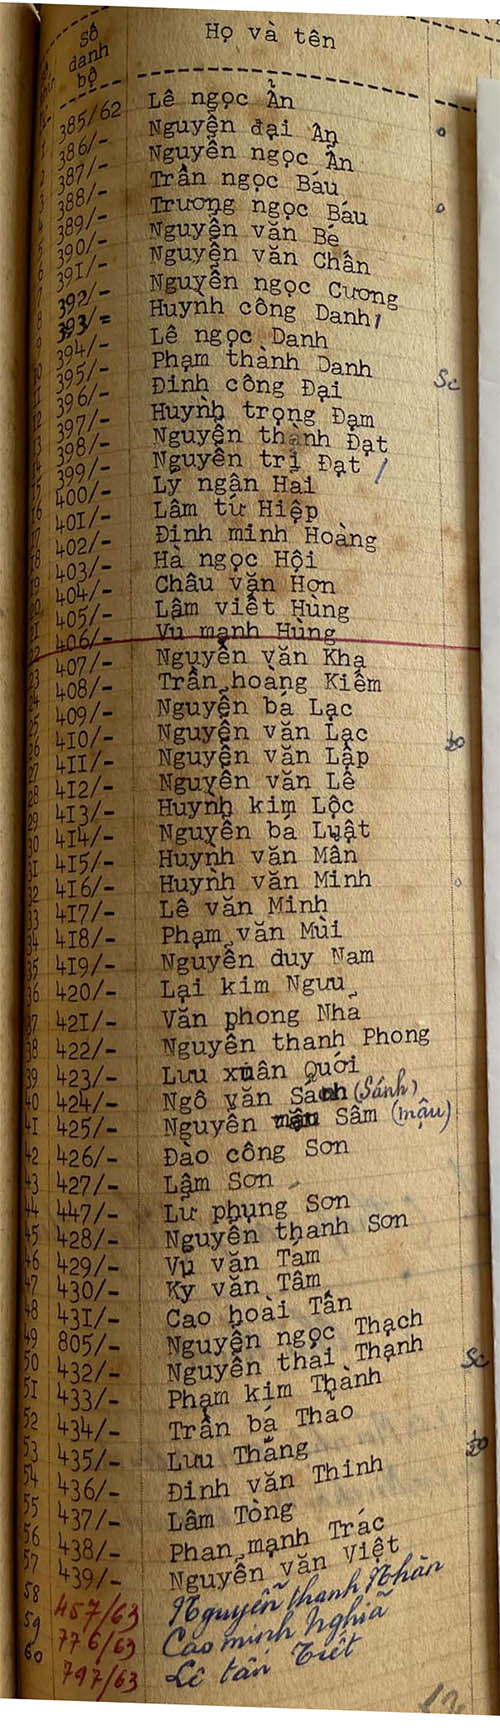 Số danh bộ Họ và tên
1 385/62 Lê ngọc Ẩn
2 386/- Nguyễn đại Ân
3 387/- Nguyễn ngọc Ẩn
4 388/- Trần ngọc Báu
5 389/- Trương ngọc Báu
6 390/- Nguyễn văn Bé
7 391/- Nguyễn văn Chẩn
8 392/- Nguyễn ngọc Cương
9 393/- Huỳnh công Danh
10 394/- Lê ngọc Danh
11 395/- Phạm thành Danh Sc
12 396/- Đinh công Đại
13 397/- Huỳnh trọng Đạm
14 398/- Nguyễn thành Đạt
15 399/- Nguyễn trị Đạt
16 400/- Ly ngân Hải
17 401/- Lâm tứ Hiệp
18 402/- Đinh minh Hoàng
19 403/- Hà ngọc Hội
20 404/- Châu văn Hơn
21 405/- Lâm viết Hùng
22 406/- Vu mạnh Hùng
23 407/- Nguyễn văn Kha
24 408/- Trần hoàng Kiếm
25 409/- Nguyễn bá Lạc
26 410/- Nguyễn văn Lạc
27 411/- Nguyễn văn Lập
28 412/- Nguyễn văn Lê
29 413/- Huỳnh kim Lộc
30 414/- Nguyễn bá Luật
31 415/- Huỳnh văn Mân
32 416/- Huỳnh văn Minh
33 417/- Lê văn Minh
34 418/- Phạm văn Mùi
35 419/- Nguyễn duy Nam
36 420/- Lại kim Ngưu
37 421/- Văn phong Nhã
38 422/- Nguyễn thanh Phong
39 423/- Lưu xuân Quới
40 424/- Ngô văn Sánh (Sánh)
41 425/- Nguyễn mậu Sâm (mậu)
42 426/- Đào công Sơn
43 427/- Lâm Sơn
44 447/- Lữ phụng Sơn
45 428/- Nguyễn thanh Sơn
46 429/- Vu văn Tam
47 430/- Ky văn Tâm
48 431/- Cao hoài Tân
49 805/- Nguyễn ngọc Thạch
50 432/- Nguyễn thái Thạnh Sc
51 433/- Phạm kim Thành
52 434/- Trần bá Thảo
53 435/- Lưu Thắng
54 436/- Đinh văn Thinh
55 437/- Lâm Tòng
56 438/- Phan mạnh Trác
57 439/- Nguyễn văn Việt
58 457/63 Nguyễn thanh Nhàn
59 776/63 Cao minh Nghĩa
60 797/63 Lê tấn Tiết